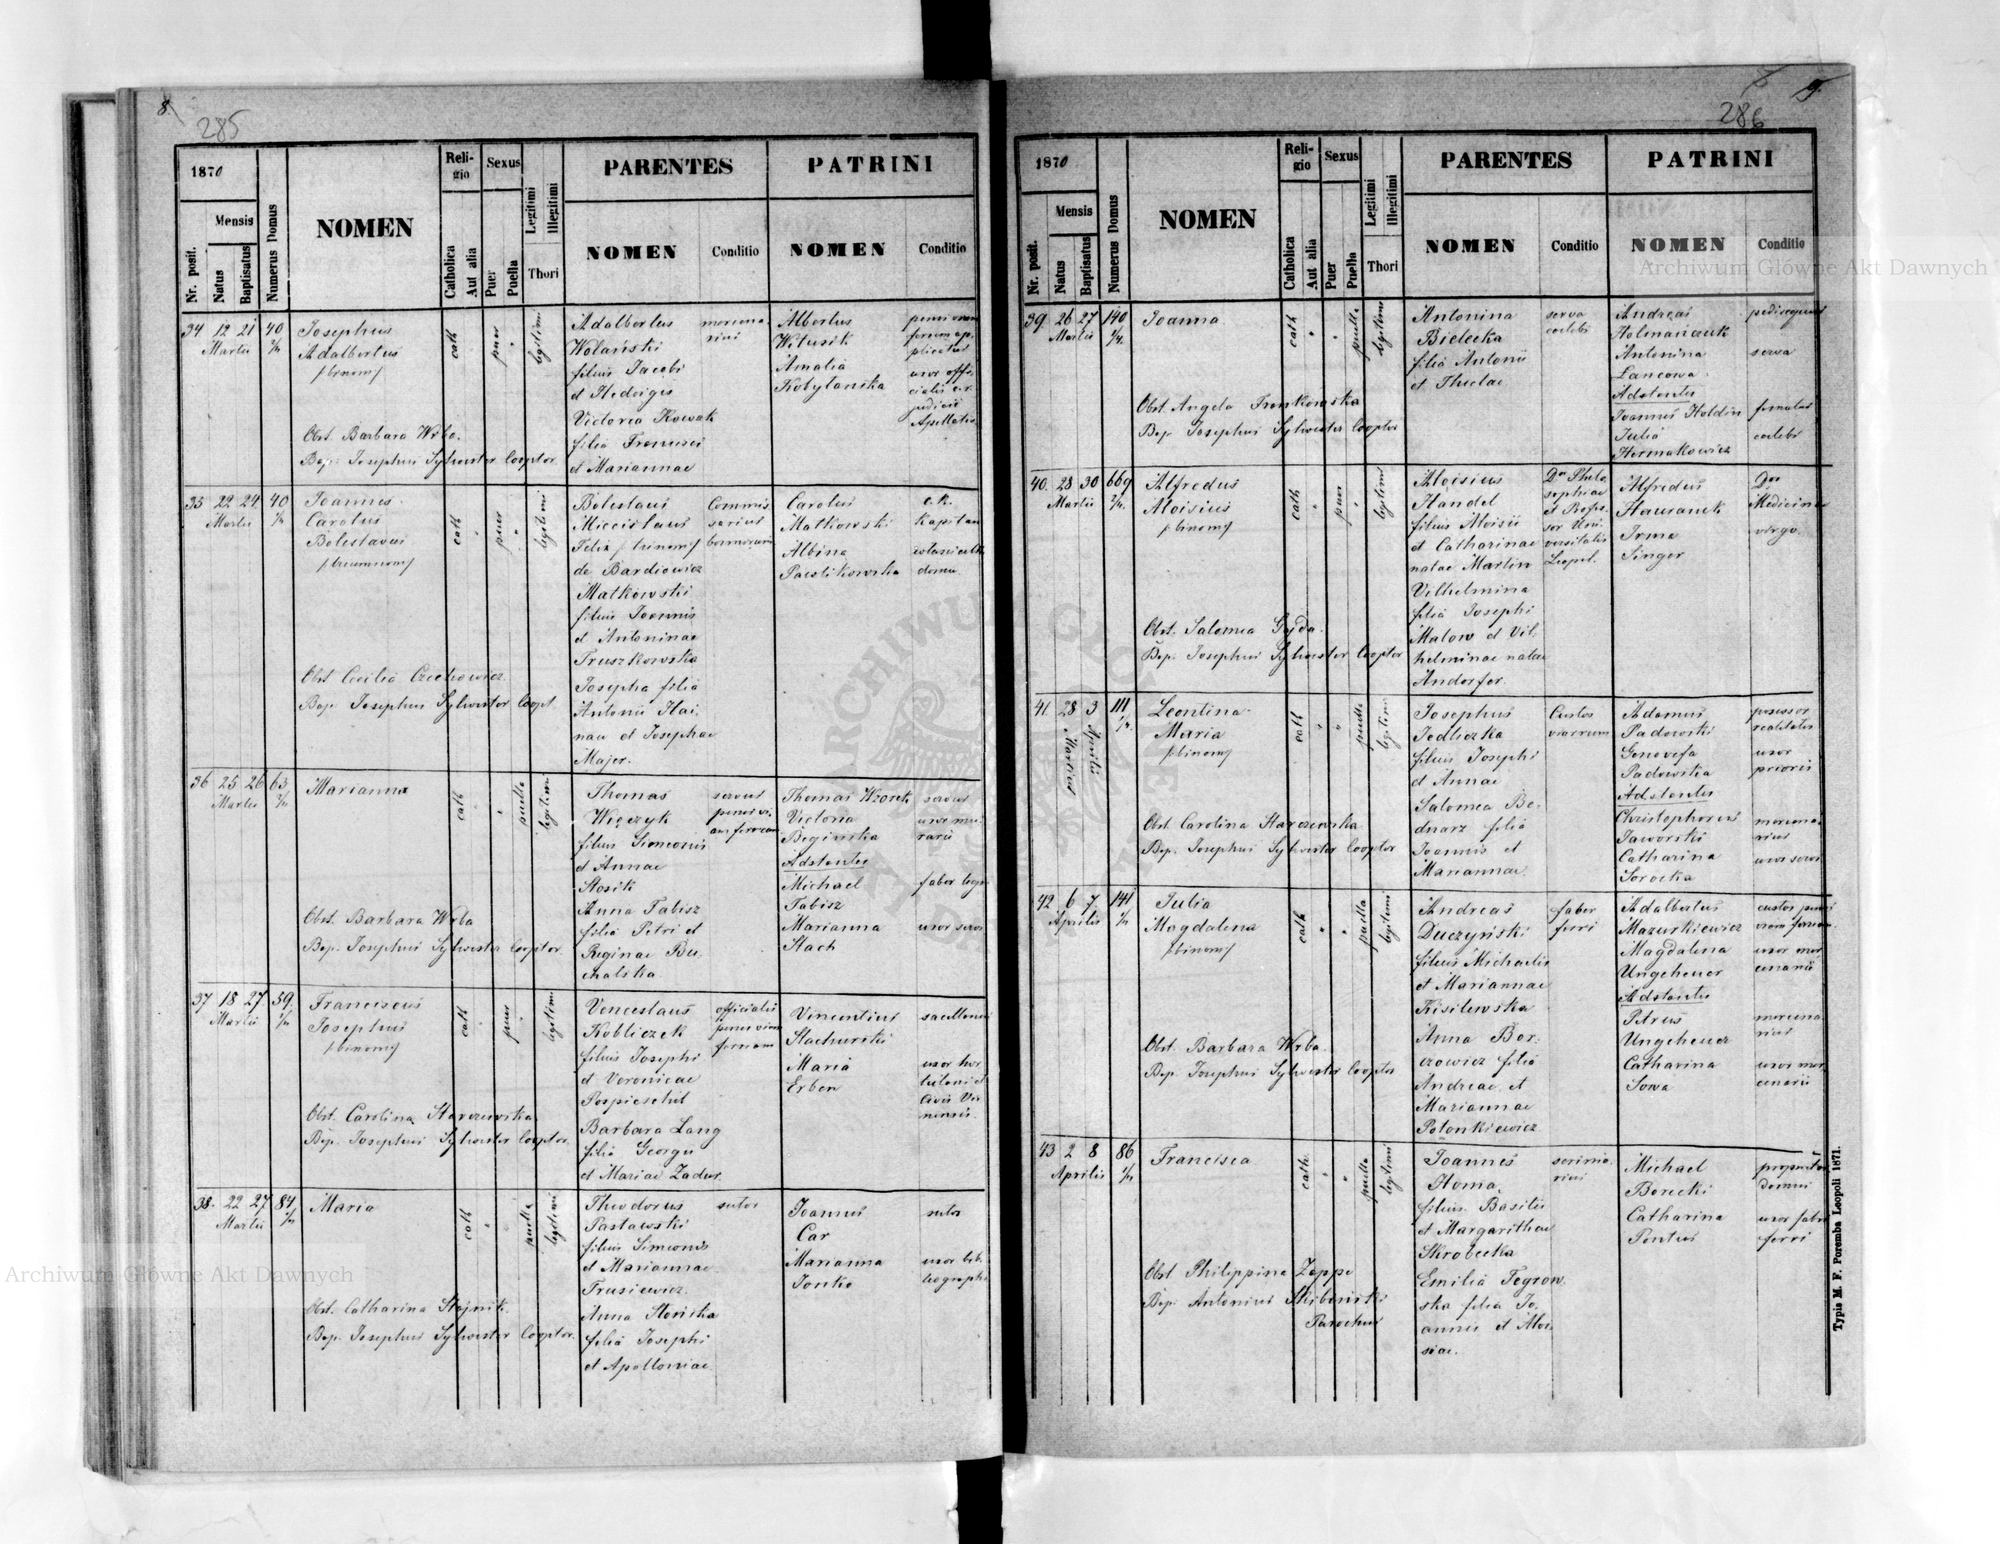 8.
285
1870
Nr. posit.
Mensis
Natus
Baptisatus
Numerus Domus
NOMEN
Religio
Catholica
Aut alia
Sexus
Puer
Puella
Legitimi
Illegitimi
Thori
PARENTES
NOMEN
Conditio
PATRINI
NOMEN
Conditio
34 12 21 40
Martii
Josephus
Adalbertus
/:binom:/
Obst. Barbara Wrba.
Bap. Josephus Sylwester Cooptor
cath
puer
legitimi
Adalbertus
Wolański
filius Jacobi
et Hedvigis
Victoria Nowak
filia Francisci
et Mariannae
Albertus
Witusik
Amalia
Kobylanska
35 22 24 40
Martii
Joannes
Carolus
Boleslaus
Obst Cecilia Czechowicz
Bap. Josephus Sylwester Coopt.
cath
puer
legitimi
Boleslaus
Miecislaus
Felix /:trinom:/
de Bardiowicz
Matkowski
filius Joannis
et Antoninae
Truszkowska
Josepha filia
Antonii Hai-
nau et Josephae
Majer.
Commis-
sarius
Carolus
Matkowski
Albina
Pawlikowska
c.k.
Kapitan
36 25 26 63
Martii
Marianna
Obst. Barbara Wrba
Bap. Josephus Sylwester Cooptor.
cath
puella
legitimi
Thomas
Więczyk
filius Simeonis
et Annae
Stosik
Anna Tabisz
filia Petri et
Reginae Bu-
chalska
servus
Thomas Wzorek
Victoria
Beginska
Adstantes
Michael
Tabisz
Marianna
Stach
servus
uxor mu-
rarii
37 18 27 59
Martii
Franciscus
Josephus
/:binom:/
Obst. Carolina Starczewska
Bap. Josephus Sylwester Cooptor.
cath
puer
legitimi
Venceslaus
Kobliczek
filius Josephi
et Veronicae
Pospieschil
Barbara Lang
filia Georgii
et Mariae Zadur
officialis
Vincentius
Stachurski
Maria
Erben
38. 22 27 84
Martii
Maria
Obst. Catharina Stojnik.
Bap. Josephus Sylwester Cooptor.
cath
puella
legitimi
Theodorus
Pastawski
filius Simeonis
et Mariannae
Trusiewicz.
Anna Słońska
filia Josephi
et Apolloniae
sutor
Joannes
Car
Marianna
Jonko
sutor
9.
286
1870
Nr. posit.
Mensis
Natus
Baptisatus
Numerus Domus
NOMEN
Religio
Catholica
Aut alia
Sexus
Puer
Puella
Legitimi
Illegitimi
Thori
PARENTES
NOMEN
Conditio
PATRINI
NOMEN
Conditio
39 26 27 140
Martii
Joanna
Obst. Angela Frenkowska
Bap. Josephus Sylwester Cooptor
cath
puella
Antonina
Bielecka
filia Antonii
et Theclae
serva
Andreas
Antonina
Adstantes
Joannes Holdin
Julia
Hermakowicz
serva
famulus
40. 28 30 669
Martii
Alfredus
Aloisius
/:binom:/
Obst. Salomea Gajda.
Bap. Josephus Sylwester Cooptor
cath
puer
legitimi
Aloisius
Handel
filius Aloisii
et Catharinae
natae Martin
Vilhelmina
filia Josephi
Malow et Vil-
helminae natae
Andorfer.
Dr. Philo-
sophiae
et Profes-
sor Uni-
versitatis
Leopol.
Alfredus
Hauranek
Irma
Singer
Dor
Medicinae
virgo.
41. 28 3 111
Martii
Aprilis
Leontina
Maria
/:binom:/
Obst. Carolina Starczewska
Bap. Josephus Sylwester Cooptor
cath
puella
legitimi
Josephus
Jedliczka
filius Josephi
et Annae
Salomea Be-
dnarz filia
Joannis et
Mariannae.
Custos
viarum
Adamus
Padowski
Genovefa
Padowska
Adstantes
Christophorus
Jaworski
Catharina
Sorocka
possessor
realitatis
uxor
prioris
42 6 7 141
Aprilis
Julia
Magdalena
/:binom:/
Obst. Barbara Wrba.
Bap. Josephus Sylwester Cooptor
cath
puella
legitimi
Andreas
Duczyński
filius Michaelis
et Mariannae
Kisilewska
Anna Bor-
czowicz filia
Andreae et
Mariannae
Polonkiewicz
faber
ferri
Adalbertus
Mazurkiewicz
Magdalena
Ungeheuer
Adstantes
Petrus
Ungeheuer
Catharina
Sowa
43 2 8 86
Aprilis
Francisca
Obst Philippina Zappe
Bap. Antonius Skibiński
Parochus
cath.
puella
legitimi
Joannes
Homa,
filius Basilii
et Margarithae
Skrobecka
Emilia Tegrow-
ska filia Jo-
annis et Aloi-
siae.
Michael
Borecki
Catharina
Pontus
proprietor
domus
uxor fabri
ferri
Typis M. F. Poremba Leopoli 1871.
Archiwum Główne Akt Dawnych
Archiwum Główne Akt Dawnych